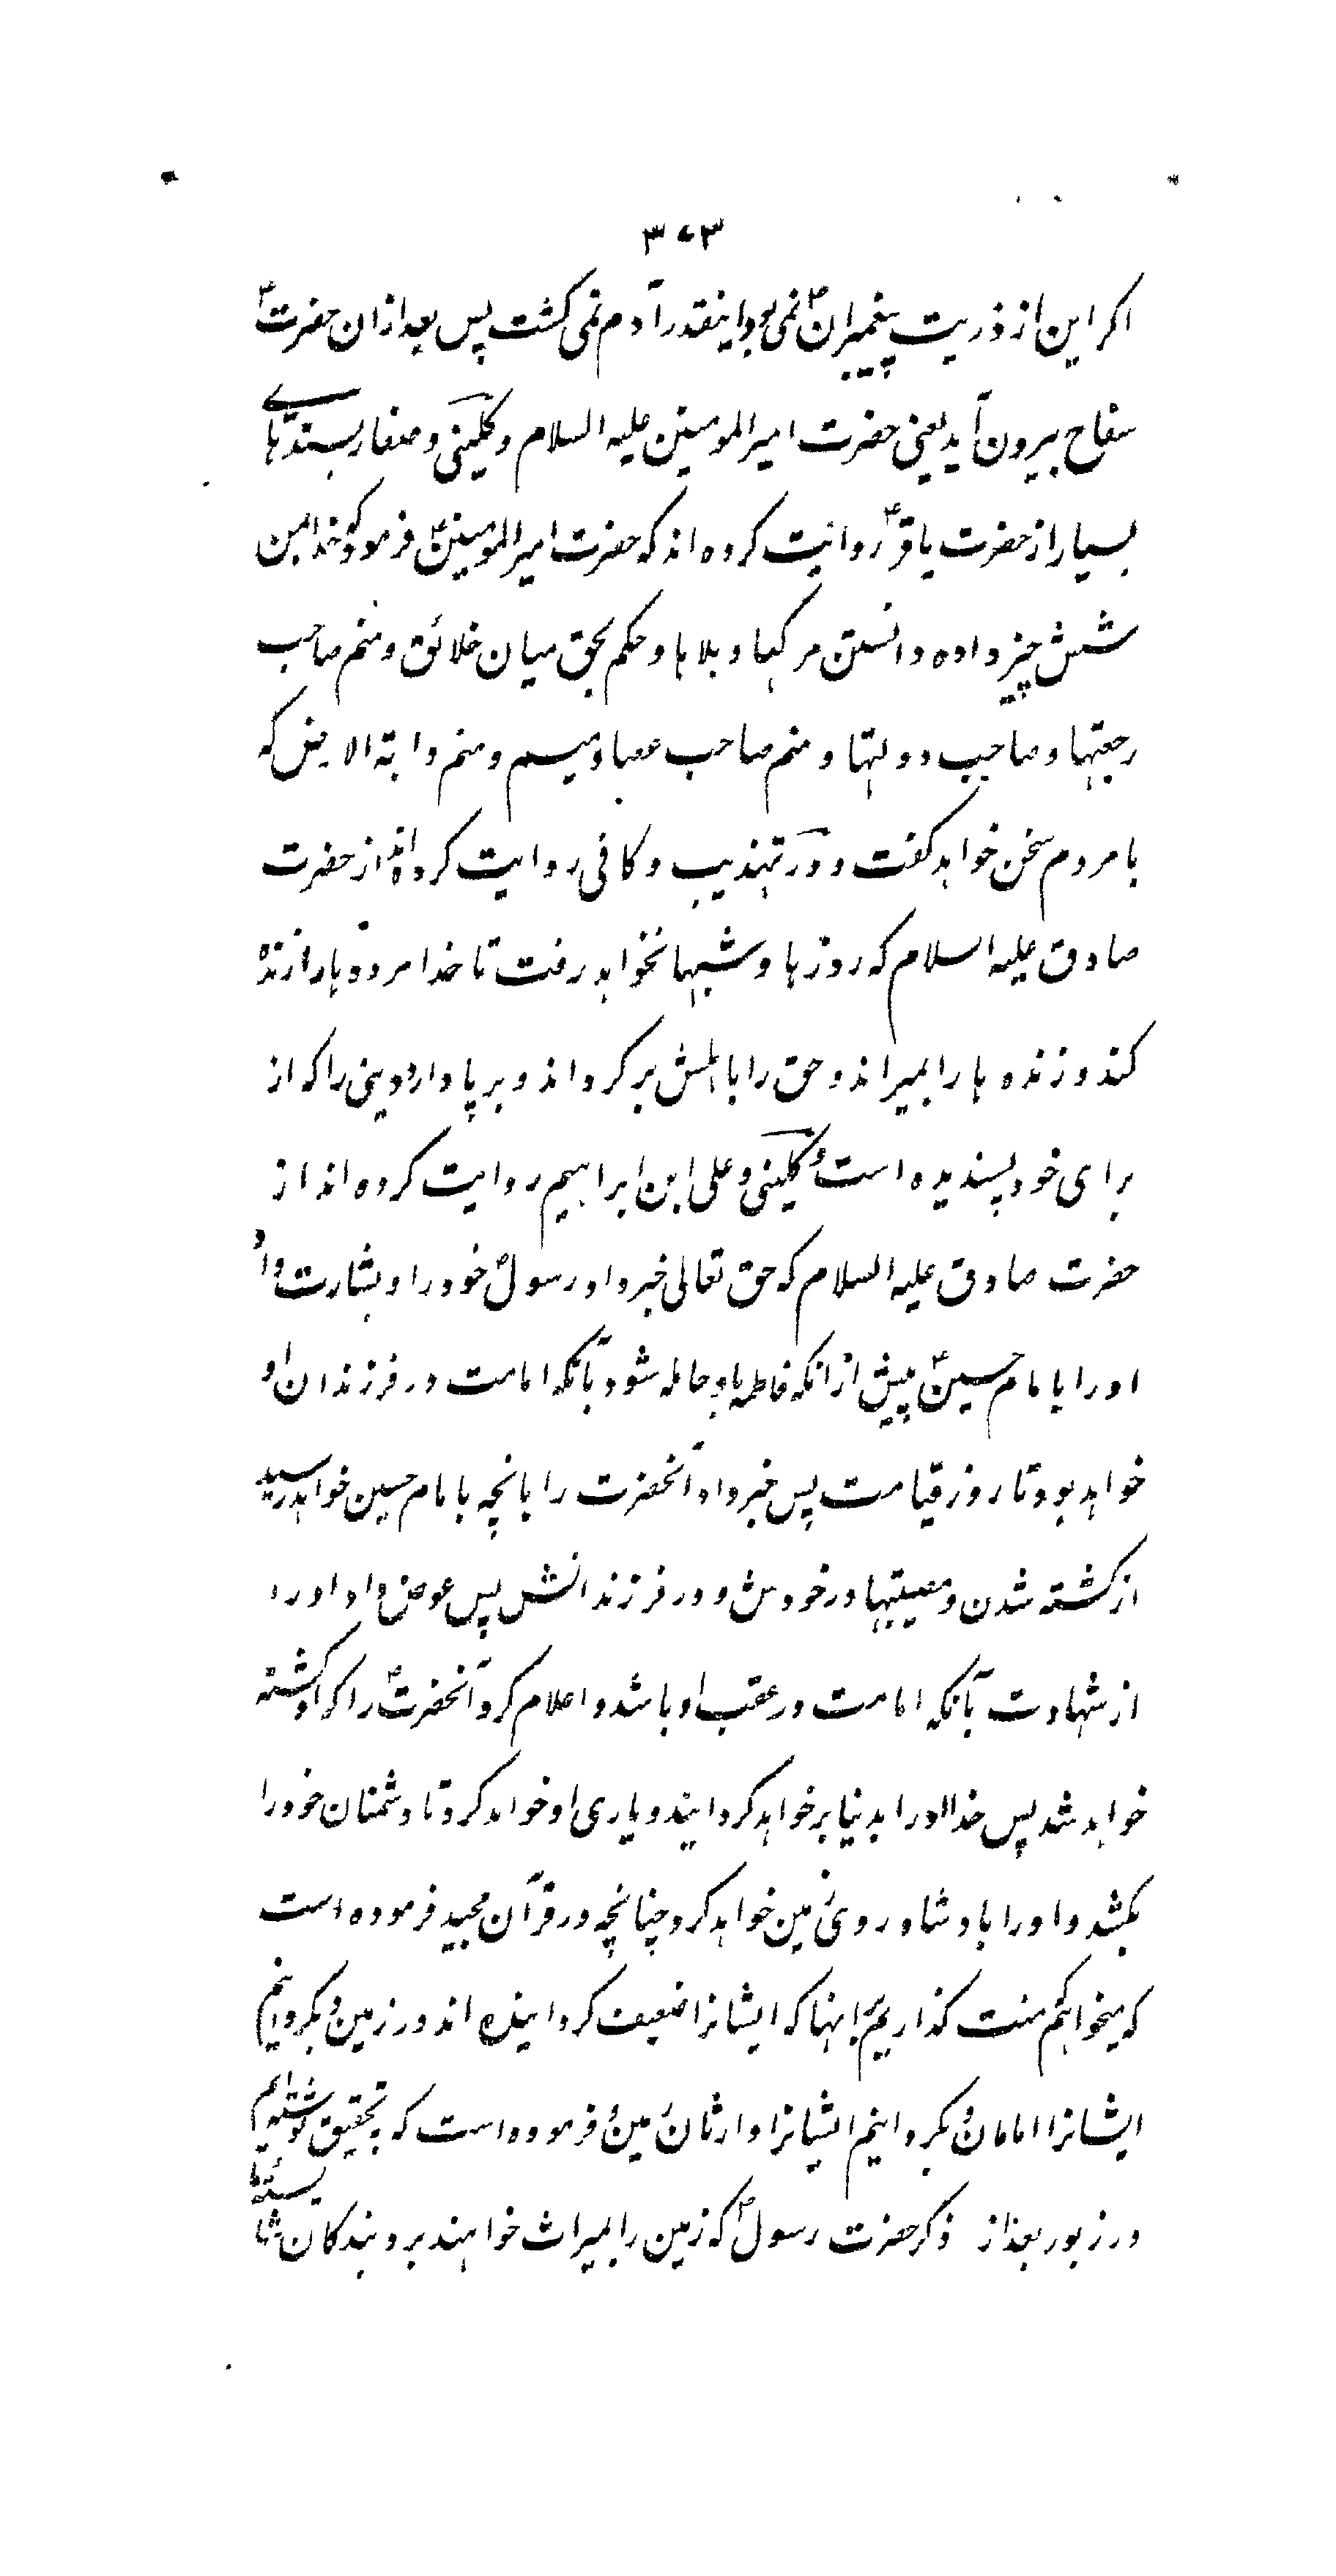 ۳۷۳
اکر این از ذریت پیغمبران؟ نمی بود اینقدر آدم نمی کشت پس بعد ازان حضرت؟
سفاح بیرون آید یعنی حضرت امیر المومنین علیه السلام و کلینی و صفار بسندهای
بسیار از حضرت باقر؟ روایت کرده اند که حضرت امیر المومنین؟ فرمود که خدا بمن
شش چیز داده دانستن مرکها و بلاها و حکم بحق میان خلائق و منم صاحب
رجعتها و صاحب دولتها و منم صاحب عصا و میسم و منم دابة الارض که
با مردم سخن خواهد کفت و در تهذیب و کافی روایت کرده اند از حضرت
صادق علیه السلام که روزها و شبها نخواهد رفت تا خدا مرده ها را زنده
کند و زنده ها را بمیراند و حق را باهلش بر کرداند و بر پا دارد دینی را که از
برای خود پسندیده است و کلینی و علی ابن ابراهیم روایت کرده اند از
حضرت صادق علیه السلام که حق تعالی خبر داد رسول خود را و بشارت داد
او را بامام حسین؟ پیش از انکه فاطمه باو حامله شود بآنکه امامت در فرزندان او
خواهد بود تا روز قیامت پس خبر داد آنحضرت را بانچه بامام حسین خواهد رسید
از کشته شدن و مصیبتها در خودش و در فرزندانش پس عوض داد او را
از شهادت بآنکه امامت در عقب او باشد و اعلام کرد آنحضرت؟ را که او کشته
خواهد شد پس خدا او را بدنیا بر خواهد کردانید و یاری او خواهد کرد تا دشمنان خود را
بکشد و او را بادشاه روی زمین خواهد کرد چنانچه در قرآن مجید فرموده است
که میخواهیم منت کذاریم بر انها که ایشانرا ضعیف کردانیده اند در زمین و بکردانیم
ایشانرا امامان و بکردانیم ایشانرا وارثان زمین و فرموده است که بتحقیق نوشته ایم
در زبور بعد از ذکر حضرت رسول؟ که زمین را بمیراث خواهند برد بندکان شایسته ما